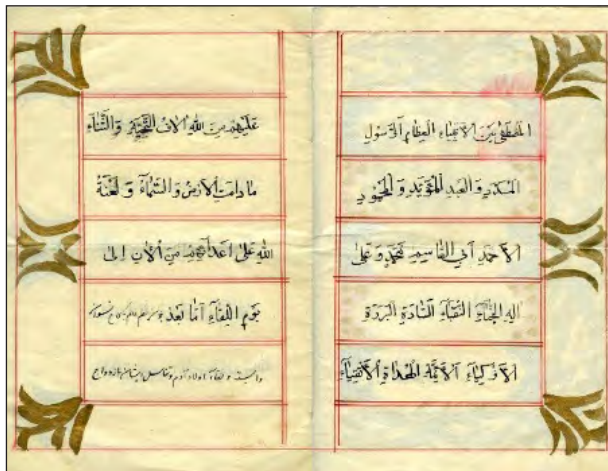 المصطفى بين الأنبياء العظام الرسول
المسدد و العبد المؤيد و المحمود
الأحمد أبي القاسم محمد و على
اله النجباء النقباء السادة البررة
الأزكياء الأئمة الهداة الأتقياء
عليهم من الله آلاف التحية و الثناء
ما دامت الأرض و السماء و لعنة
الله على أعدائهم من الآن إلى
يوم اللقاء أما بعد
اولاد آدم و تناسل ایشان